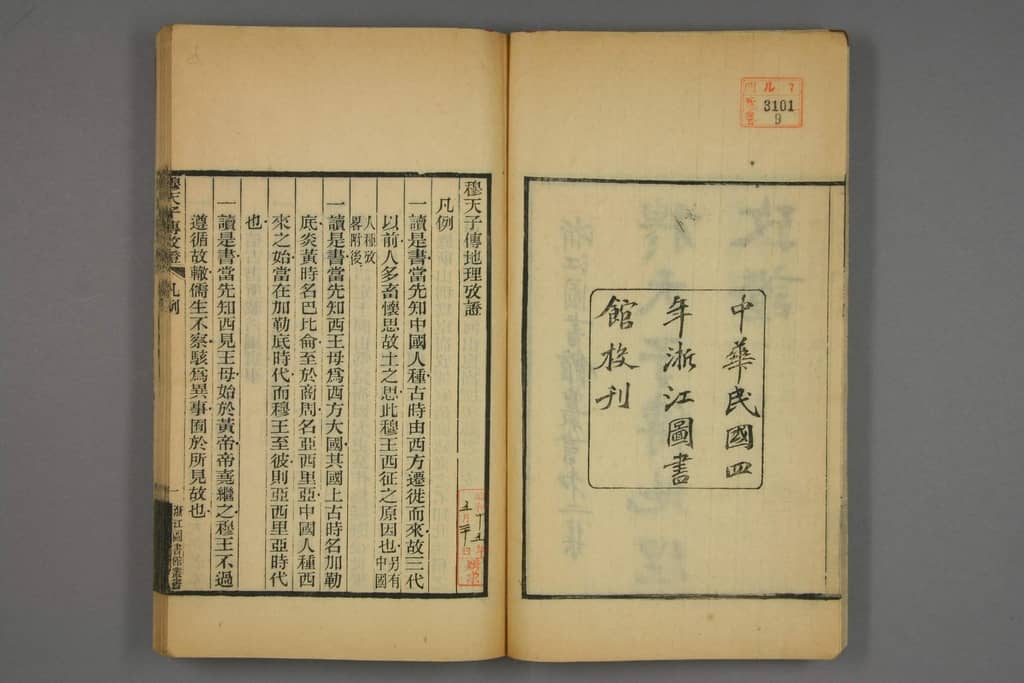 ル
3101
9
中華民國四
年浙江圖書
館校刊
穆天子傳地理攷證
凡例
一讀是書當先知中國人種古時由西方遷徙而來故三代
以前人多畜懷思故土之思此穆王西征之原因也另有中國
人種攷
畧附後
一讀是書當先知西王母爲西方大國其國上古時名加勒
底炎黃時名巴比侖至於商周名亞西里亞中國人種西
來之始當在加勒底時代而穆王至彼則亞西里亞時代
也
一讀是書當先知西見王母始於黃帝帝堯繼之穆王不過
遵循故轍儒生不察駭爲異事囿於所見故也
穆天子傳攷證 凡例
一
浙江圖書館叢書